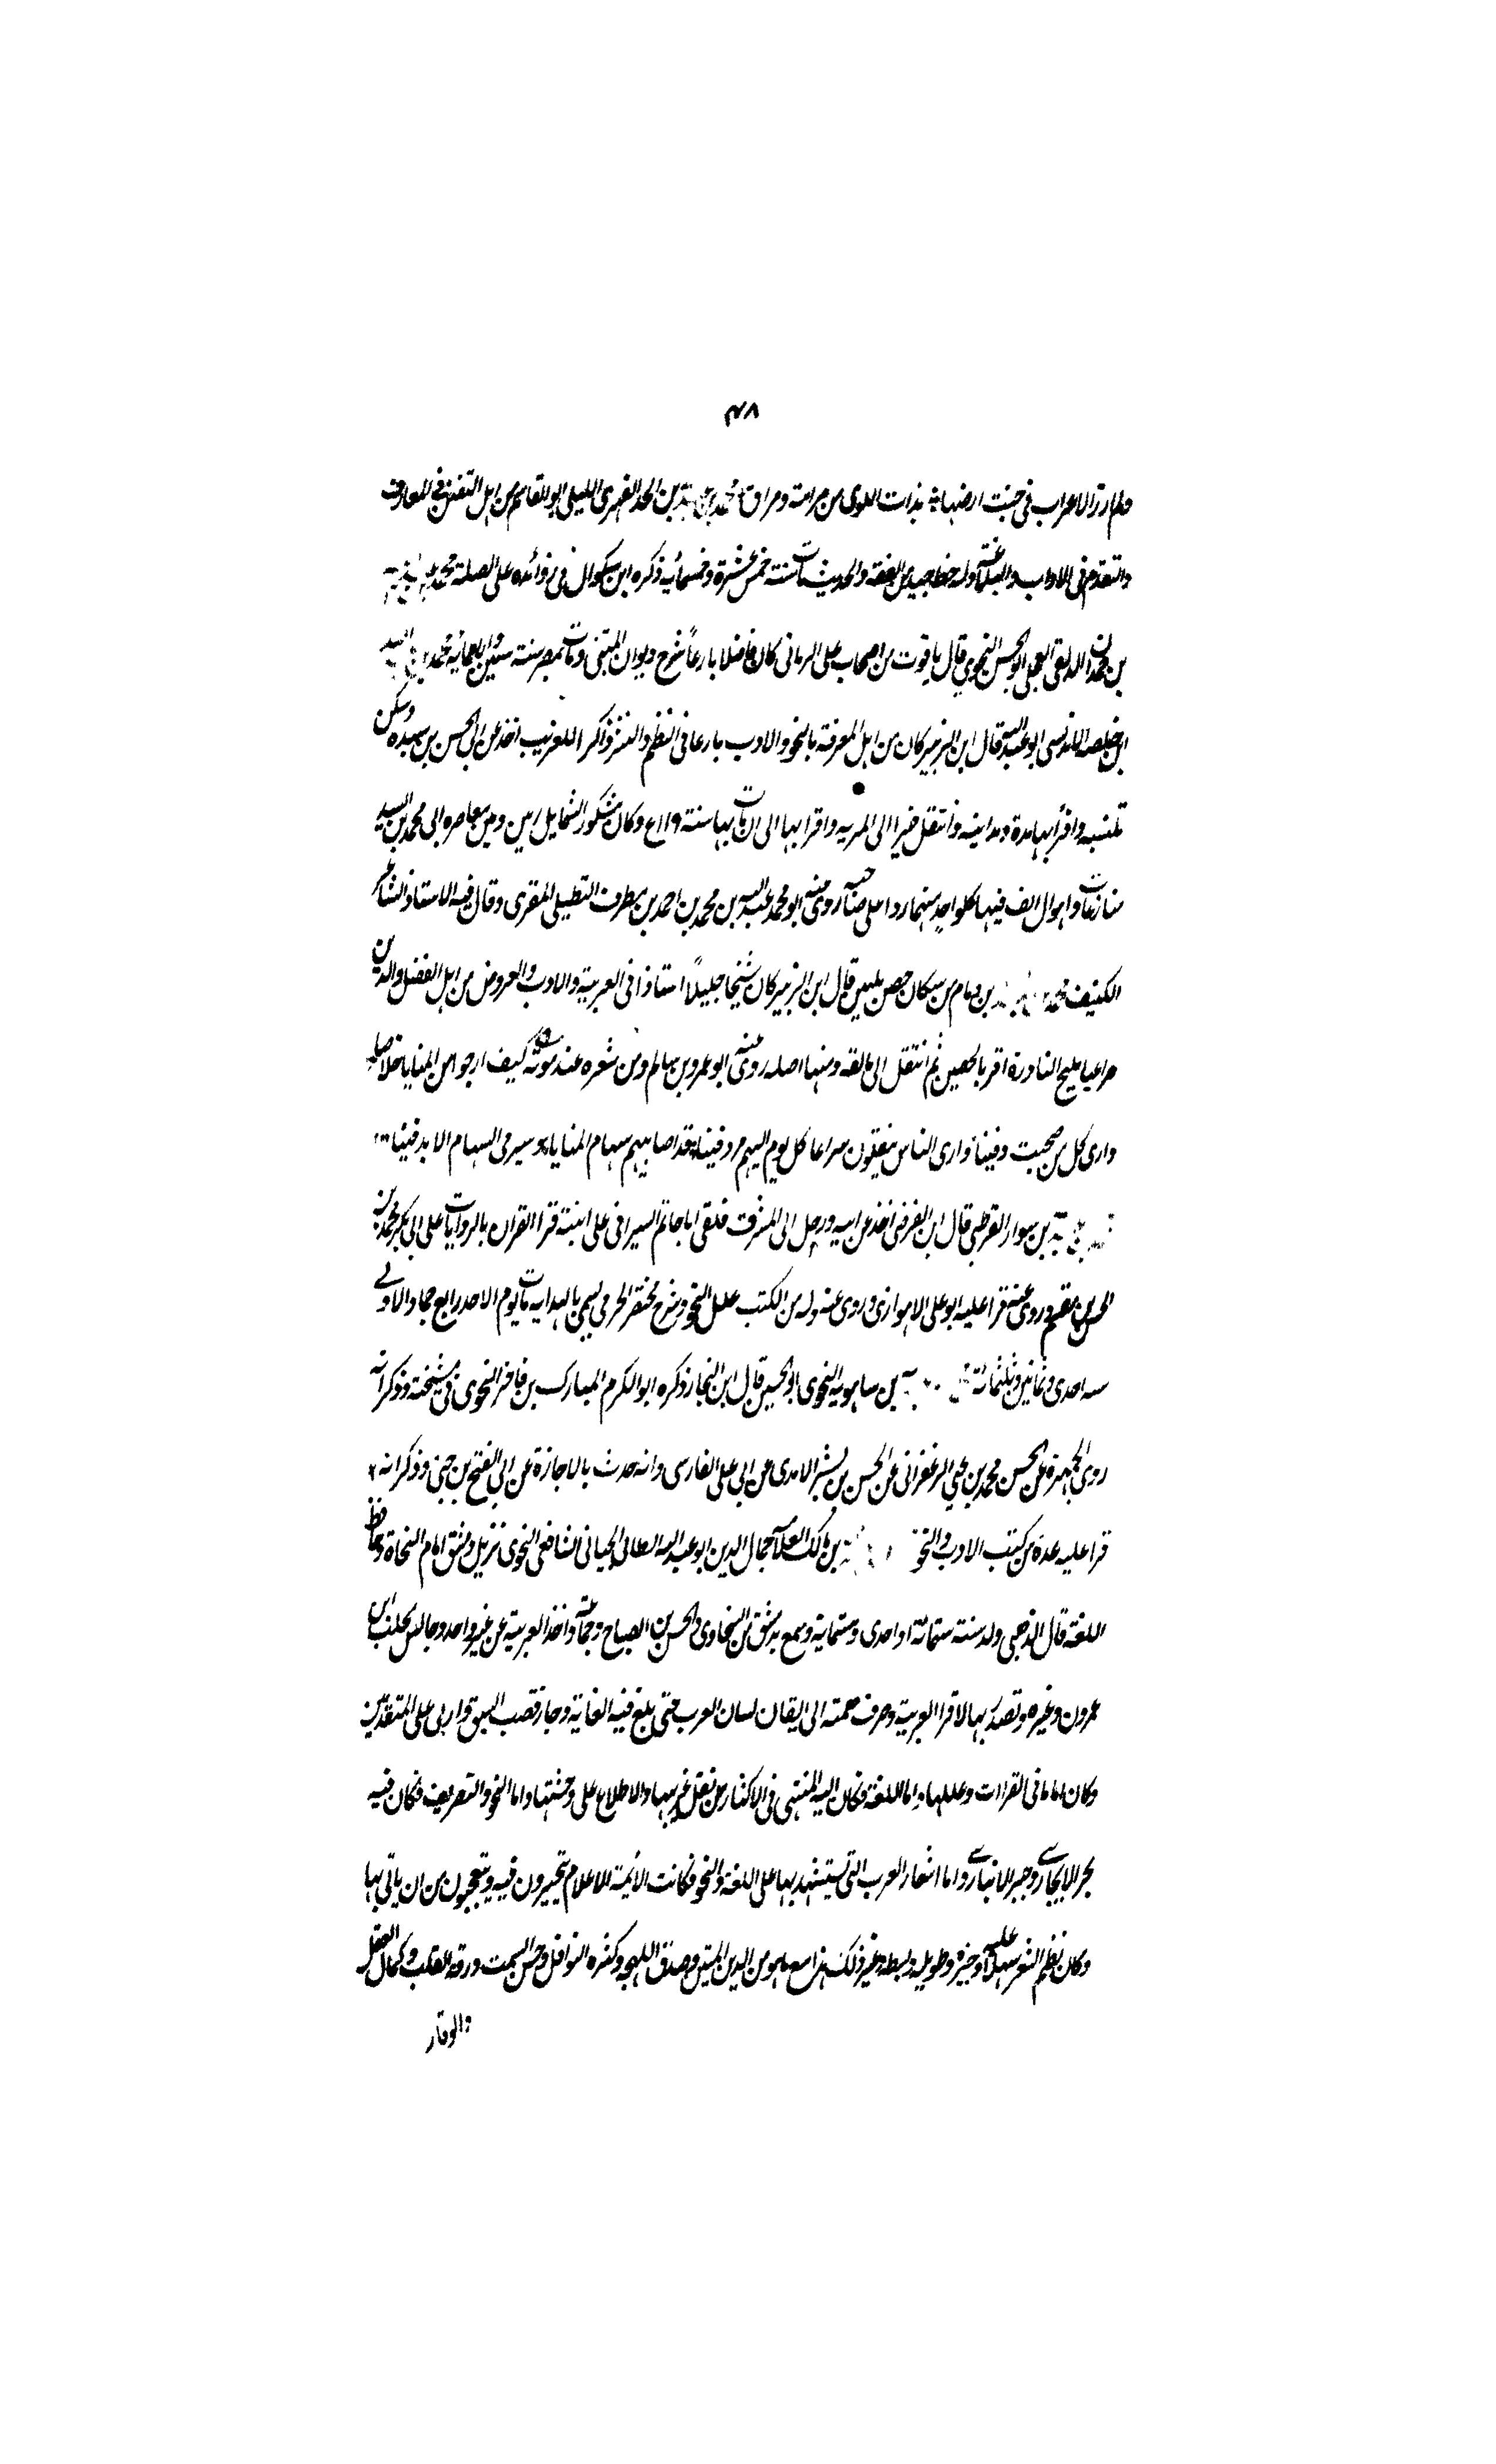 ٤٨
ولم ار الاعراب فى جنت ارضها بذات اللوى من رامة وبراق محمد بن عبد بن الجد الفهرى اللبلى ابو القاسم من اهل التفنن فى المعارف
والتقدم فى الاداب والبلاغة وله حظ جيد من الفقه والحديث مات سنة خمس عشرة وخمسمائة ذكره ابن بشكوال فى زوائده على الصلة محمد
بن حمدان الدلفى العجلى ابو الحسن النحوى قال ياقوت من اصحاب على الرمانى كان فاضلا بارعاً شرح ديوان المتنبى ومات بمصر سنة ستين واربعمائة محمد بن عبد الله
ابن خلصه البلنسى ابو عبد الله قال ابن الزبير كان من اهل المعرفة بالنحو والادب بارعا فى النظم والنثر ذاكرا للغريب اخذ عن ابى الحسن بن سيده وسكن
بلنسيه واقرأ بها مدة ودانيه وانتقل اخيرا الى المريه واقرا بها الى ان مات بها سنة وكان مشكور الشمايل ابين ومن معاصره ابى محمد بن السيد
منازعات واهوال الف فيها كل واحد منهما ردا على صاحبه روى عنه ابو محمد عبد الله بن محمد بن احمد بن مطرف التطيلى المقرى وقال فيه الاستاذ الشاعر
الكفيف محمد بن دمام من سكان حصن بلبيس قال ابن الزبير كان شيخا جليلاً استاذا فى العربية والادب والعروض من اهل الفضل والدين
مراعيا مليح النادرة اقرا بالحصين ثم انتقل الى مالقه ومنها اصله روى عنه ابو عمرو بن سالم ومن شعره عند موته كيف ارجو من المنايا خلاصا
وارى كل من صحبت دفينا وارى الناس ينقلون سراعا كل يوم اليهم مردفينا قد اصابتهم سهام المنايا وسيرمى السهام الا بدفينا
بن سوار القرطبى قال ابن الفرضى اخذ عن ابيه ورحل الى المشرق فلقى ابا حاتم السيرافى على ابنته قرا القران بالروايات على ابى بكر محمد بن
الحسن بن مقسم وروى عنه قرا عليه ابو على الاهوازى وروى عنه وله من الكتب علل النحو وشرح مختصر الجرمى يسمى بالهدايه مات يوم الاحد رابع جماد الاولى
سنه احدى وثمانين وثلثمائة بن ساهويه النحوى ابو الحسين قال ابن النجار ذكره ابو الكرم المبارك بن فاخر النحوى فى مشيخته وذكر انه
روى الجمهرة عن الحسن محمد بن يحيى الزعفرانى عن الحسن بن بشر الامدى عن ابى على الفارسى وانه حدث بالاجازة عن ابى الفتح بن جنى وذكر انه
قرا عليه عدة من كتب الادب والنحو بن مالك العلامة جمال الدين ابو عبد الله الطائى الجيانى الشافعى النحوى نزيل دمشق امام النحاة وحافظ
اللغة قال الذهبى ولد سنة ستمائة او احدى وستمائة وسمع بدمشق من السخاوى والحسن بن الصباح وجماعة واخذ العربية عن غير واحد وجالس بحلب ابن
عمرون وغيره وتصدر بها لاقرا العربية وصرف همته الى ايقان لسان العرب حتى بلغ فيه الغاية وحاز قصب السبق واربى على المتقدمين
وكان اماما فى القراات وعللها واما اللغة فكان اليه المنتهى فى الاكثار من نقل غريبها والاطلاع على وحشيها واما النحو والتصريف فكان فيه
بحرا لا يجارى وحبرا لا يبارى واما اشعار العرب التى يستشهد بها على اللغة والنحو فكانت الائمة الاعلام يتحيرون فيه ويتعجبون من اين ياتى بها
وكان نظم الشعر سهلاً عليه وجيزه وطويله وبسيطه وغير ذلك هذا مع ما هو من الدين المتين وصدق اللهجه وكثرة النوافل وحسن السمت ورقة القلب وكمال العقل
والوقار